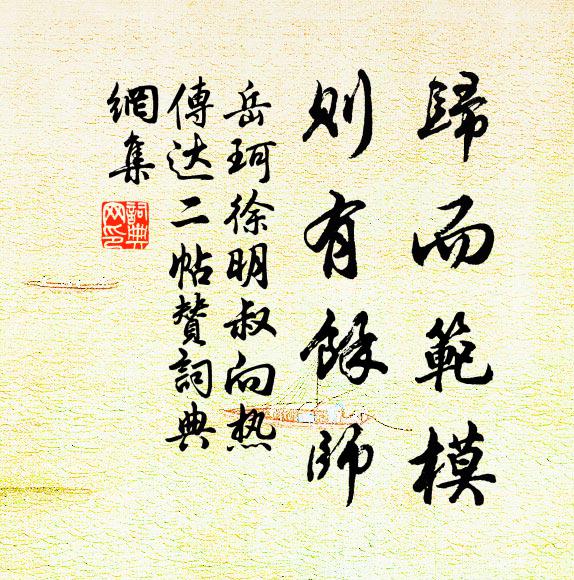 歸而範模
則有餘師
岳珂徐明叔向热
傳达二帖贊詞典
網集
詞典
网印